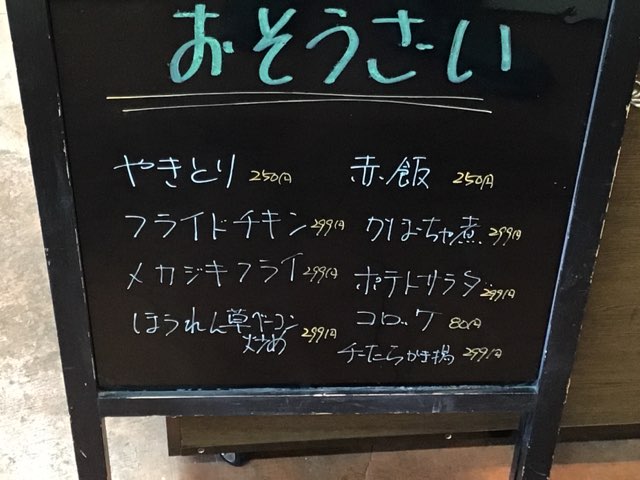 おそうざい
やきとり 250円
フライドチキン 299円
メカジキフライ 299円
ほうれん草ベーコン
炒め 299円
赤飯 250円
かぼちゃ煮 299円
ポテトサラダ 299円
コロッケ 80円
チーたらかき揚 299円